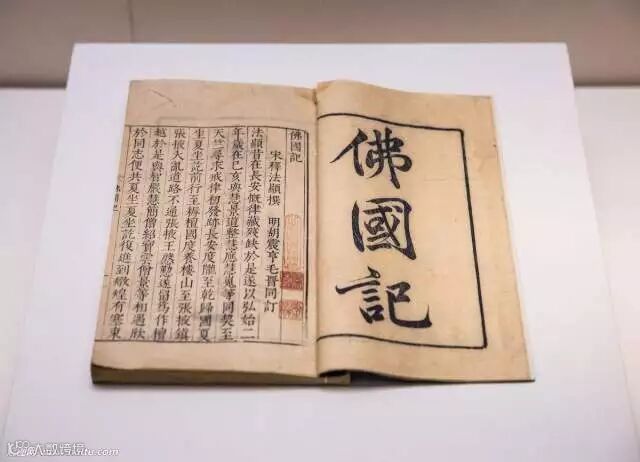 佛國記
佛國記
宋釋法顯撰 明胡震亨毛晉同訂
法顯昔在長安慨律藏殘缺於是遂以弘始二
年歲在己亥與慧景道整慧應慧嵬等同契至
天竺尋求戒律初發跡長安度隴至乾歸國夏
坐夏坐訖前行至耨檀國度養樓山至張掖鎮
張掖大亂道路不通張掖王慇懃遂留爲作檀
越於是與智嚴慧簡僧紹寶雲僧景等相遇欣
於同志便共夏坐夏坐訖復進到燉煌有塞東
大数跨境